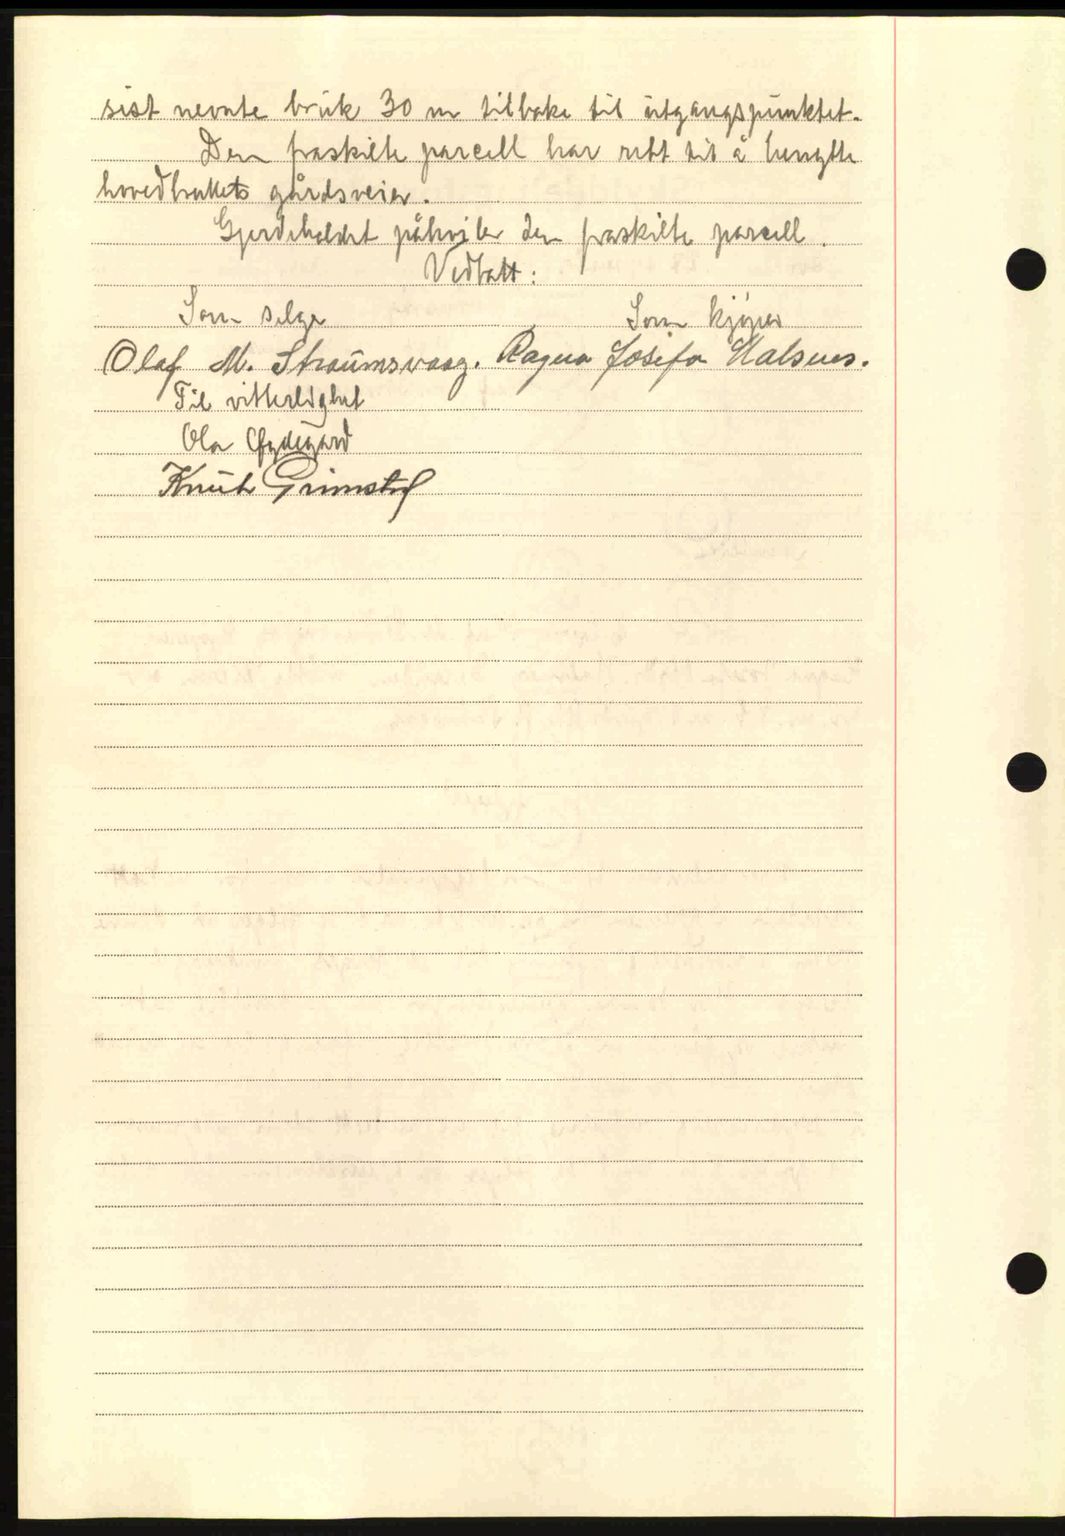 sist nevnte bruk 30 m tilbake til utgangspunktet.
Den fraskilte parcell har rett til å benytte
hovedbrukets gårdsveier.
Gjerdeholdet påhviler den fraskilte parcell.
Vedtatt:
Som selger Som kjøper
Olaf M. Straumsvaag. Ragna Josefa Halsnes.
Til vitterlighet
Ola
Knut Grimstad